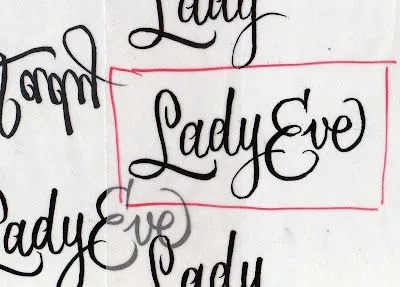 Lady
Lady Eve
Lady Eve
Lady